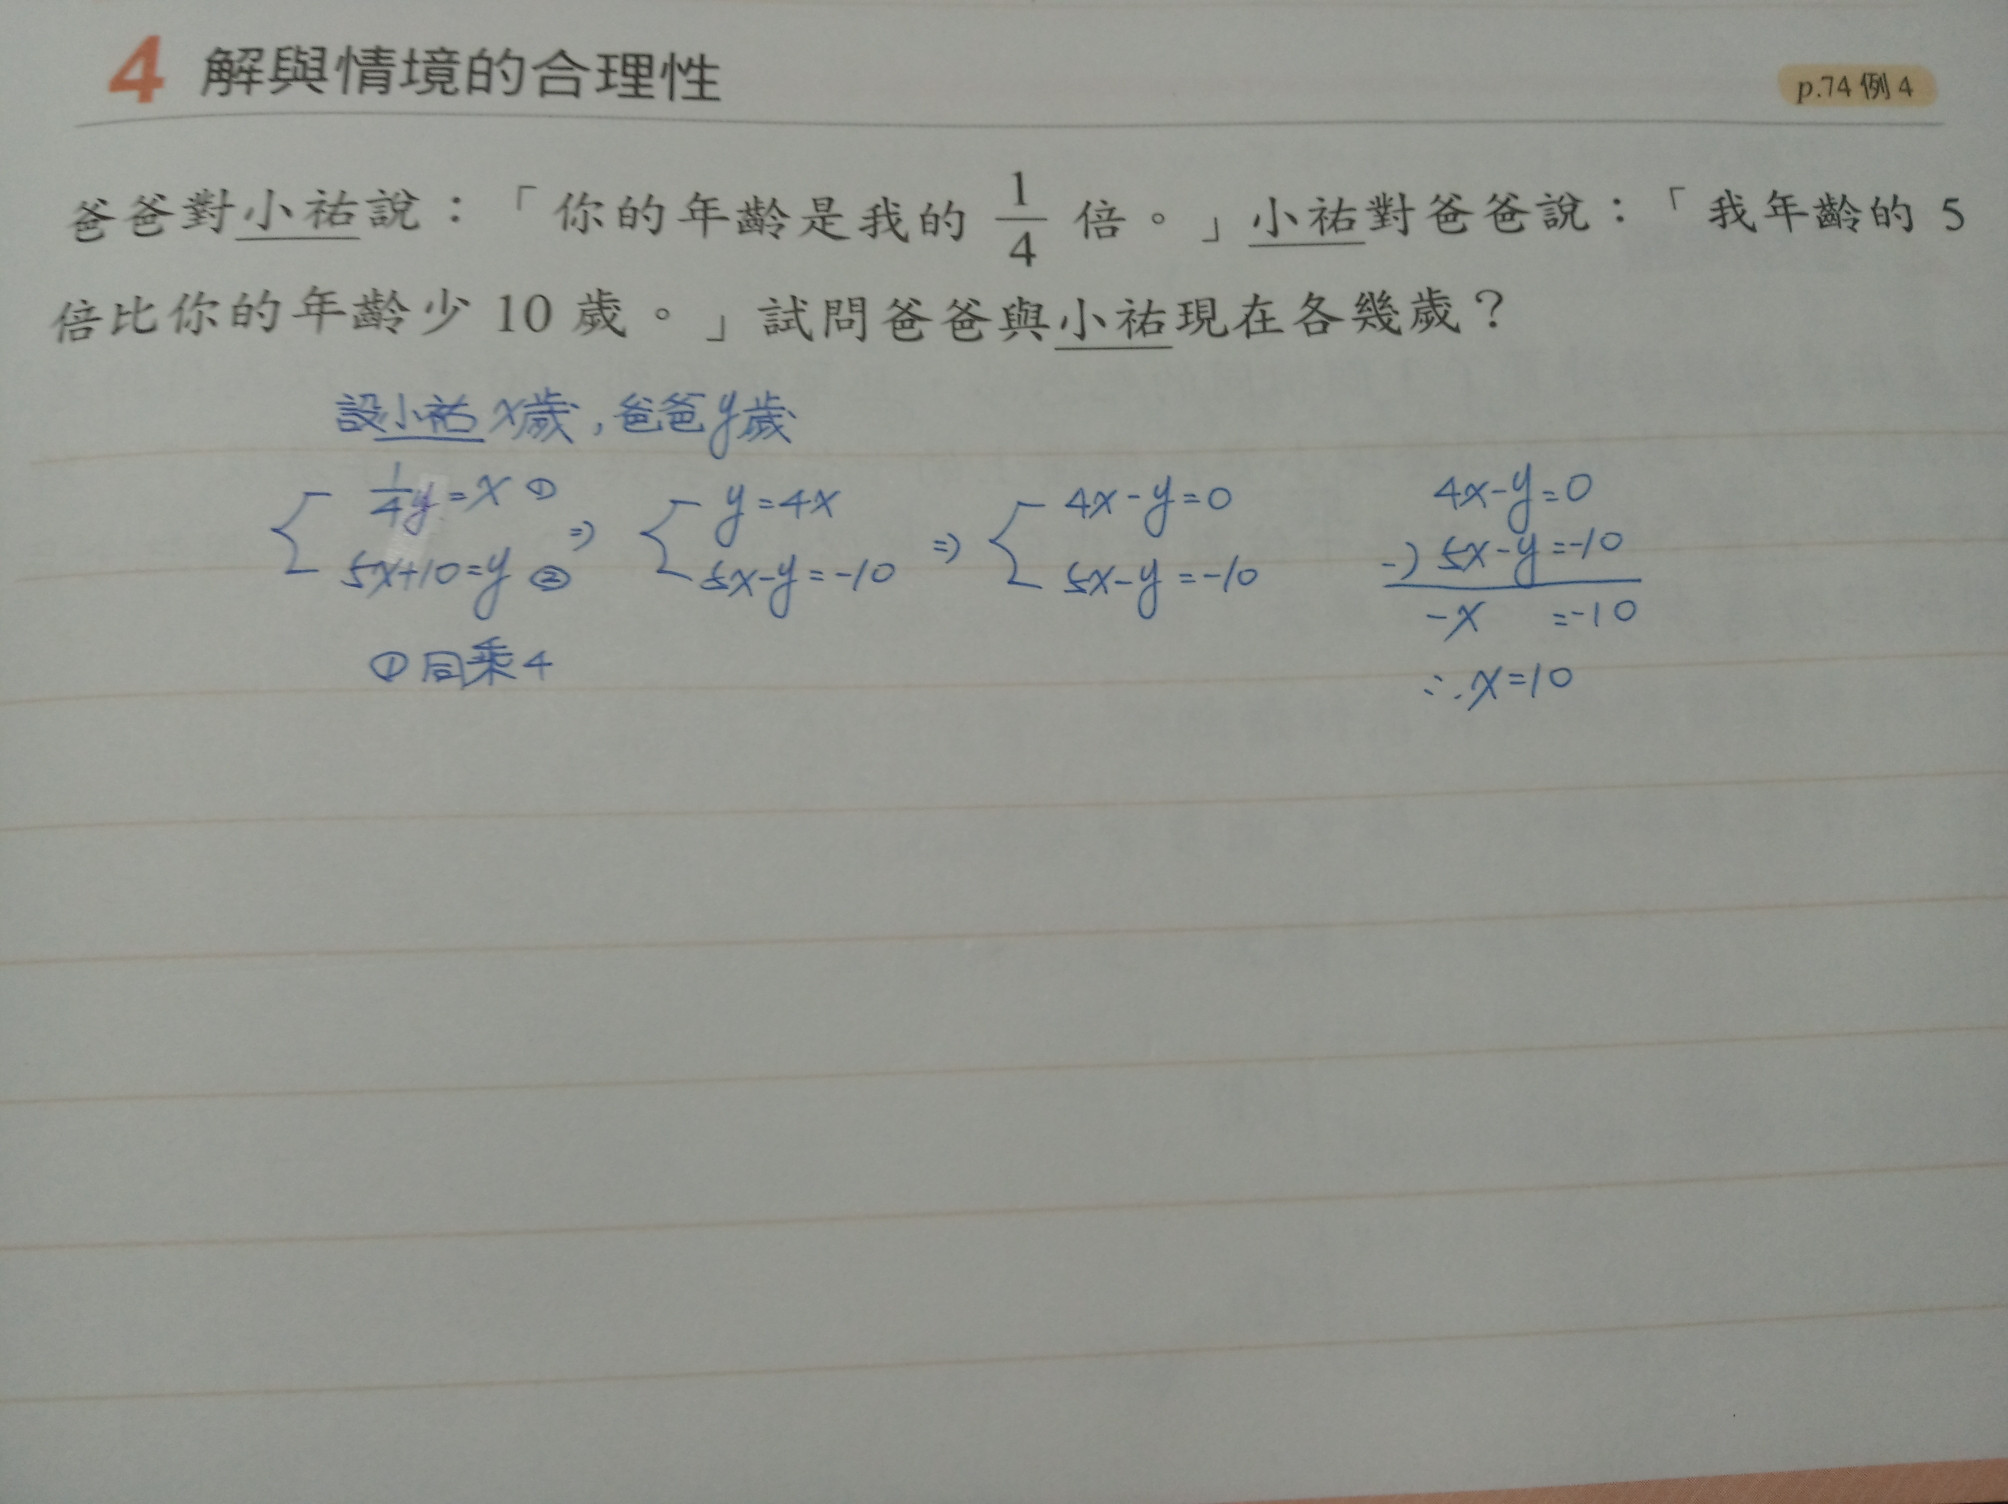 4 解與情境的合理性 p.74 例 4
爸爸對小祐說：「你的年齡是我的 1/4 倍。」小祐對爸爸說：「我年齡的 5
倍比你的年齡少 10 歲。」試問爸爸與小祐現在各幾歲？
設小祐x歲，爸爸y歲
1/4y=x ① ⇒ y=4x ⇒ 4x-y=0 4x-y=0
5x+10=y ② 5x-y=-10 5x-y=-10 -) 5x-y=-10
-x =-10
①同乘4 ∴x=10